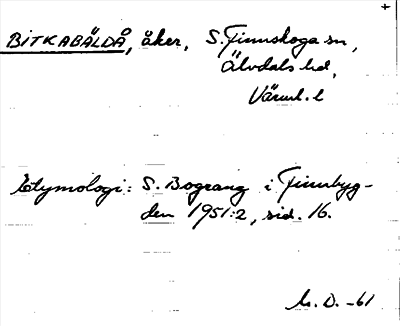 BITKABÄLDÅ, åker, S. Finnskoga sn,
Älvdals hd,
Värml. l
Etymologi: S. Bograng i Finnbyg-
den 1951:2, sid. 16.
M. D. -61